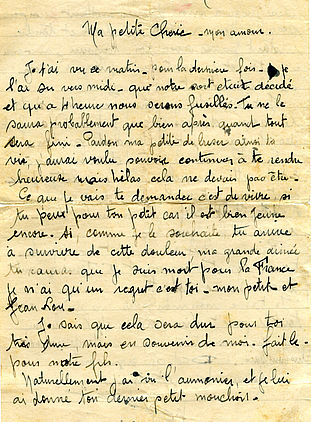 Ma petite Chérie - mon amour.
Je t'ai vue ce matin - pour la dernière fois - je
l'ai su vers midi - que notre sort etait décidé
et que a 4 heure nous serons fusillés. Tu ne le
saura probablement que bien après quant tout
sera fini - Pardon ma petite de briser ainsi ta
vie j'aurai voulu pouvoir continuer à te rendre
heureuse mais hélas cela ne devait pas être -
Ce que je vais te demander c'est de vivre si
tu peux pour ton petit car il est bien jeune
encore. Si comme je le souhaite tu arrive
à survivre de cette douleur ma grande aimée
tu sauras que je suis mort pour la France
je n'ai qu'un regret c'est toi - mon petit et
Jean Lou -
Je sais que cela sera dur pour toi
très dur, mais en souvenir de moi - fait le -
pour notre fils.
Naturellement j'ai vu l'aumonier, et je lui
ai donné ton dernier petit mouchoir -